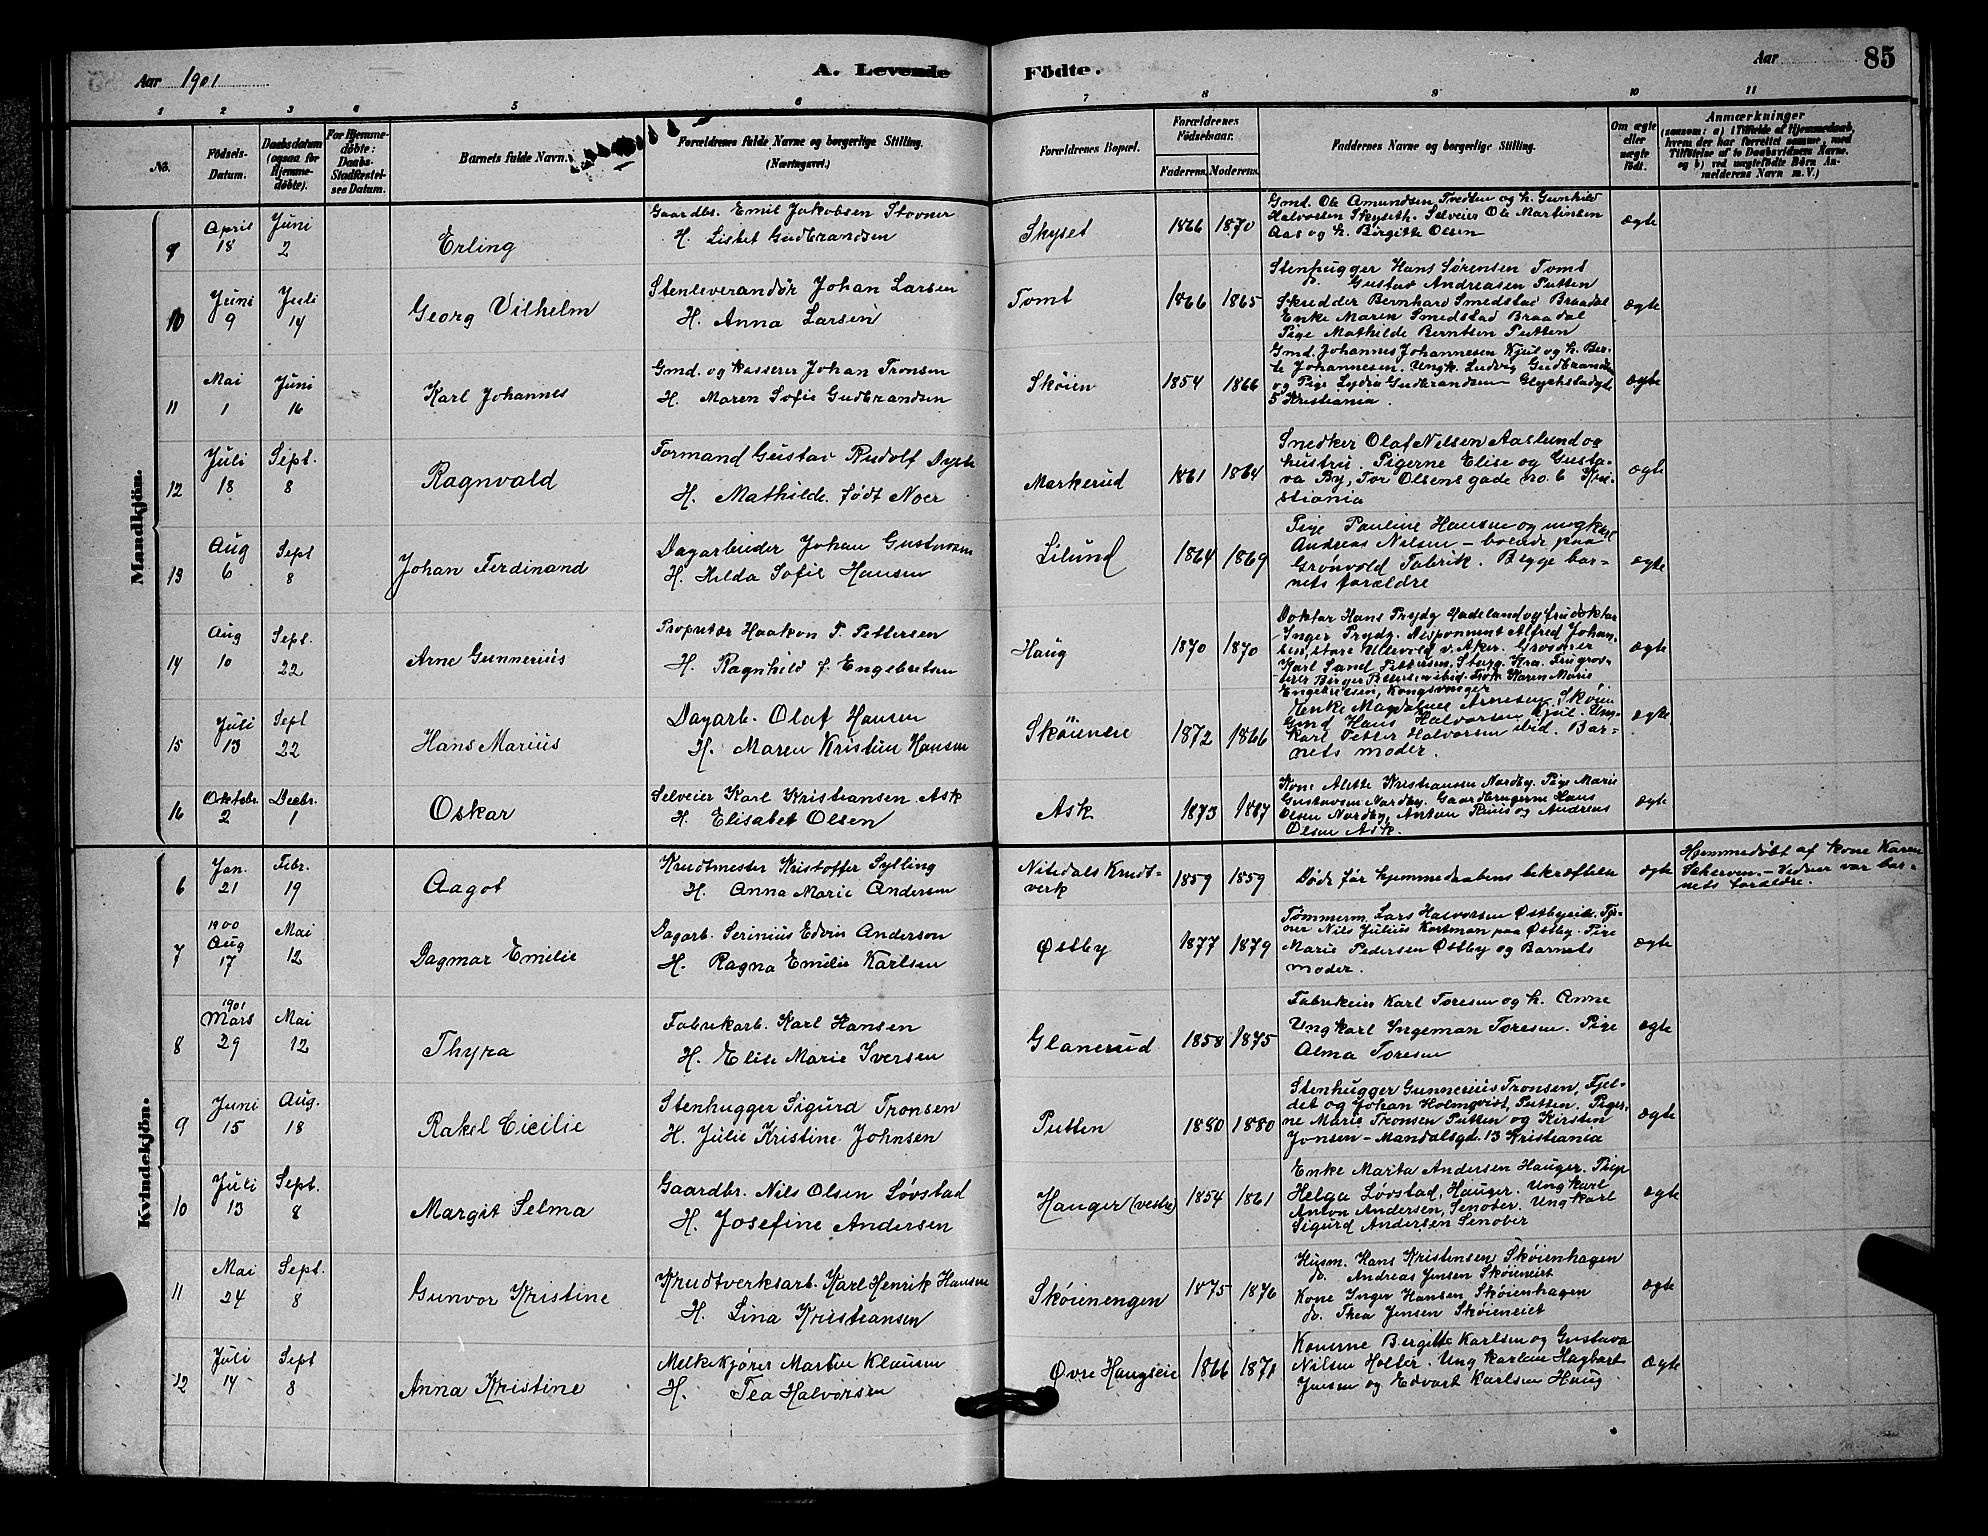 Aar 1901
A. Levende
Födte.
Aar
85
1 2 3 4 5 6 7 8 9 10 11
No.
Födsels-Datum.
Daabsdatum (ogsaa for Hjemme-døbte).
For Hjemme-döbte: Daabs-Stadfæstel-ses Datum.
Barnets fulde Navn.
Forældrenes fulde Navne og borgerlige Stilling. (Næringsvei.)
Forældrenes Bopæl.
Forældrenes Födselsaar.
Faderens. Moderens.
Faddernes Navne og borgerlige Stilling.
Om ægte eller uægte födt.
Anmærkninger
(saasom: a) i Tilfælde af Hjemmedaab,
hvem der har forrettet samme, med
Tilföielse af to Daabsvidners Navne.
og b) ved uægtefödte Börn An-
melderens Navn m. V.)
Mandkjön.
9 April 18 Juni 2 Erling
Gaardbr. Emil Jakobsen Stovner
H. Lisbet Gudbrandsen
Skyset 1866 1870
Gmd. Ole Amundsen Tvedten og h. Gunhild
Halvorsen Skyseth. Selveier Ole Martinsen
Aas og h. Birgitte Olsen
ægte
10 Juni 9 Juli 14 Georg Vilhelm
Stenleverandör Johan Larsen
H. Anna Larsen
Tomt 1866 1865
Stenhugger Hans Sørensen Tomt
do. Gustav Andreasen Putten
Skrædder Bernhard Smedstad Braadal
Enke Maren Smedstad Braadal
Pige Mathilde Berntsen Putten
ægte
11 Mai 1 Juni 16 Karl Johannes
Gmd. og kasserer Johan Tronsen
H. Maren Sofie Gudbrandsen
Skøien 1854 1866
Gmd. Johannes Johannesen Kjul og h. Ber-
te Johannesen. Ungk. Ludvig Gudbrandsen
og Pige Lydia Gudbrandsen
5 Kristiania.
ægte
12 Juli 18 Sept. 8 Ragnvald
Formand Gustav Rudolf Dysh
H. Mathilde født Noer
Markerud 1861 1864
Snedker Olaf Nilsen Aaslund og
hustru. Pigerne Elise og Gusta-
va By, Tor Olsens gade no. 6 Kri-
stiania
ægte
13 Aug 6 Sept 8 Johan Ferdinand
Dagarbeider Johan Gustavsen
H. Hilda Sofie Hansen
Lilund 1864 1869
Pige Pauline Hansen og ungkarl
Andreas Nilsen – boende paa
Grønvold Fabrik. Begge bar-
nets forældre
ægte
14 Aug 10 Sept. 22 Arne Gunnerius
Proprietær Haakon T. Pettersen
H. Ragnhild f. Engebretsen
Haug 1870 1870
Doktor Hans Prydz Hadeland og fru doktor
Inger Prydz. Disponent Alfred Johan-
sen, store Ullevold v. Aker. Grosserer
Karl Sand Pettersen, Storg. Kra. Fru gros-
Engebretsen, Kongsvinger
ægte
15 Juli 13 Sept 22 Hans Marius
Dagarb. Olaf Hansen
H. Maren Kristine Hansen
Skøieneie 1872 1866
Enke Magdalene Arnesen Skøien
Gmd Hans Halvorsen Kjul. Ung-
karl Petter Halvorsen ibid. Bar-
nets moder.
ægte
16 Oktobr. 2 Decbr. 1 Oskar
Selveier Karl Kristiansen Ask
H. Elisabet Olsen
Ask 1873 1867
Kone Alette Kristiansen Nordby. Pige Marie
Gustavsen Nordby. Gaardbrugerne Hans
Olsen Nordby, Anton Ruus og Andreas
Olsen Ask.
ægte
Kvindekjön.
6 Jan. 21 Febr. 19 Aagot
Krudtmester Kristoffer Sylling
H. Anna Marie Andersen
Nitedals Krudt-
verk
1859 1859
Døde før hjemmedaabens bekræftelse
ægte
Hjemmedøbt af kone Karen
Sakerven. – Vidner var bar-
nets forældre.
7 1900 Aug 17 Mai 12 Dagmar Emilie
Dagarb. Serinius Edvin Anderson
H. Ragna Emilie Karlsen
Østby 1877 1879
Tømmerm. Lars Halvorsen Østbyeie.
Nils Julius Kortman paa Østby. Pige
Marie Pedersen Østby og Barnets
moder.
ægte
8 1901 Mars 29 Mai 12 Thyra
Fabrikarb. Karl Hansen
H. Elise Marie Iversen
Glanerud 1858 1875
Fabrikeier Karl Toresen og h. Anne
Ungkarl Ingeman Toresen. Pige
Alma Toresen
ægte
9 Juni 15 Aug. 18 Rakel Cicilie
Stenhugger Sigurd Tronsen
H. Julie Kristine Johnsen
Putten 1880 1880
Stenhugger Gunnerius Tronsen, Fjel-
det og Johan Holmqvist, Putten. Piger-
ne Marie Tronsen Putten og Kirsten
Jonsen – Mandalsgd. 13 Kristiania
ægte
10 Juli 13 Sept. 8 Margit Selma
Gaardbr. Nils Olsen Løvstad
H. Josefine Andersen
Hauger (vestre) 1854 1861
Enke Marta Andersen Hauger. Pige
Helga Løvstad, Hauger. Ungkarl
Anton Andersen, Senober. Ungkarl
Sigurd Andersen Senober
ægte
11 Mai 24 Sept. 8 Gunvor Kristine
Krudtverksarb. Karl Henrik Hansen
H. Lina Kristiansen
Skøienengen 1875 1876
Husm. Hans Kristensen, Skøienhagen
do. Andreas Jensen Skøieneiet
Kone Inger Hansen Skøienhagen
do. Thea Jensen Skøieneiet
ægte
12 Juli 14 Sept 8 Anna Kristine
Melkekjører Martin Klausen
H. Tea Halvorsen
Øvre Haugseie 1866 1871
Konerne Bergitte Karlsen og Gustava
Nilsen Holter. Ungkarlene Hagbart
Jensen og Edvart Karlsen Haug
ægte